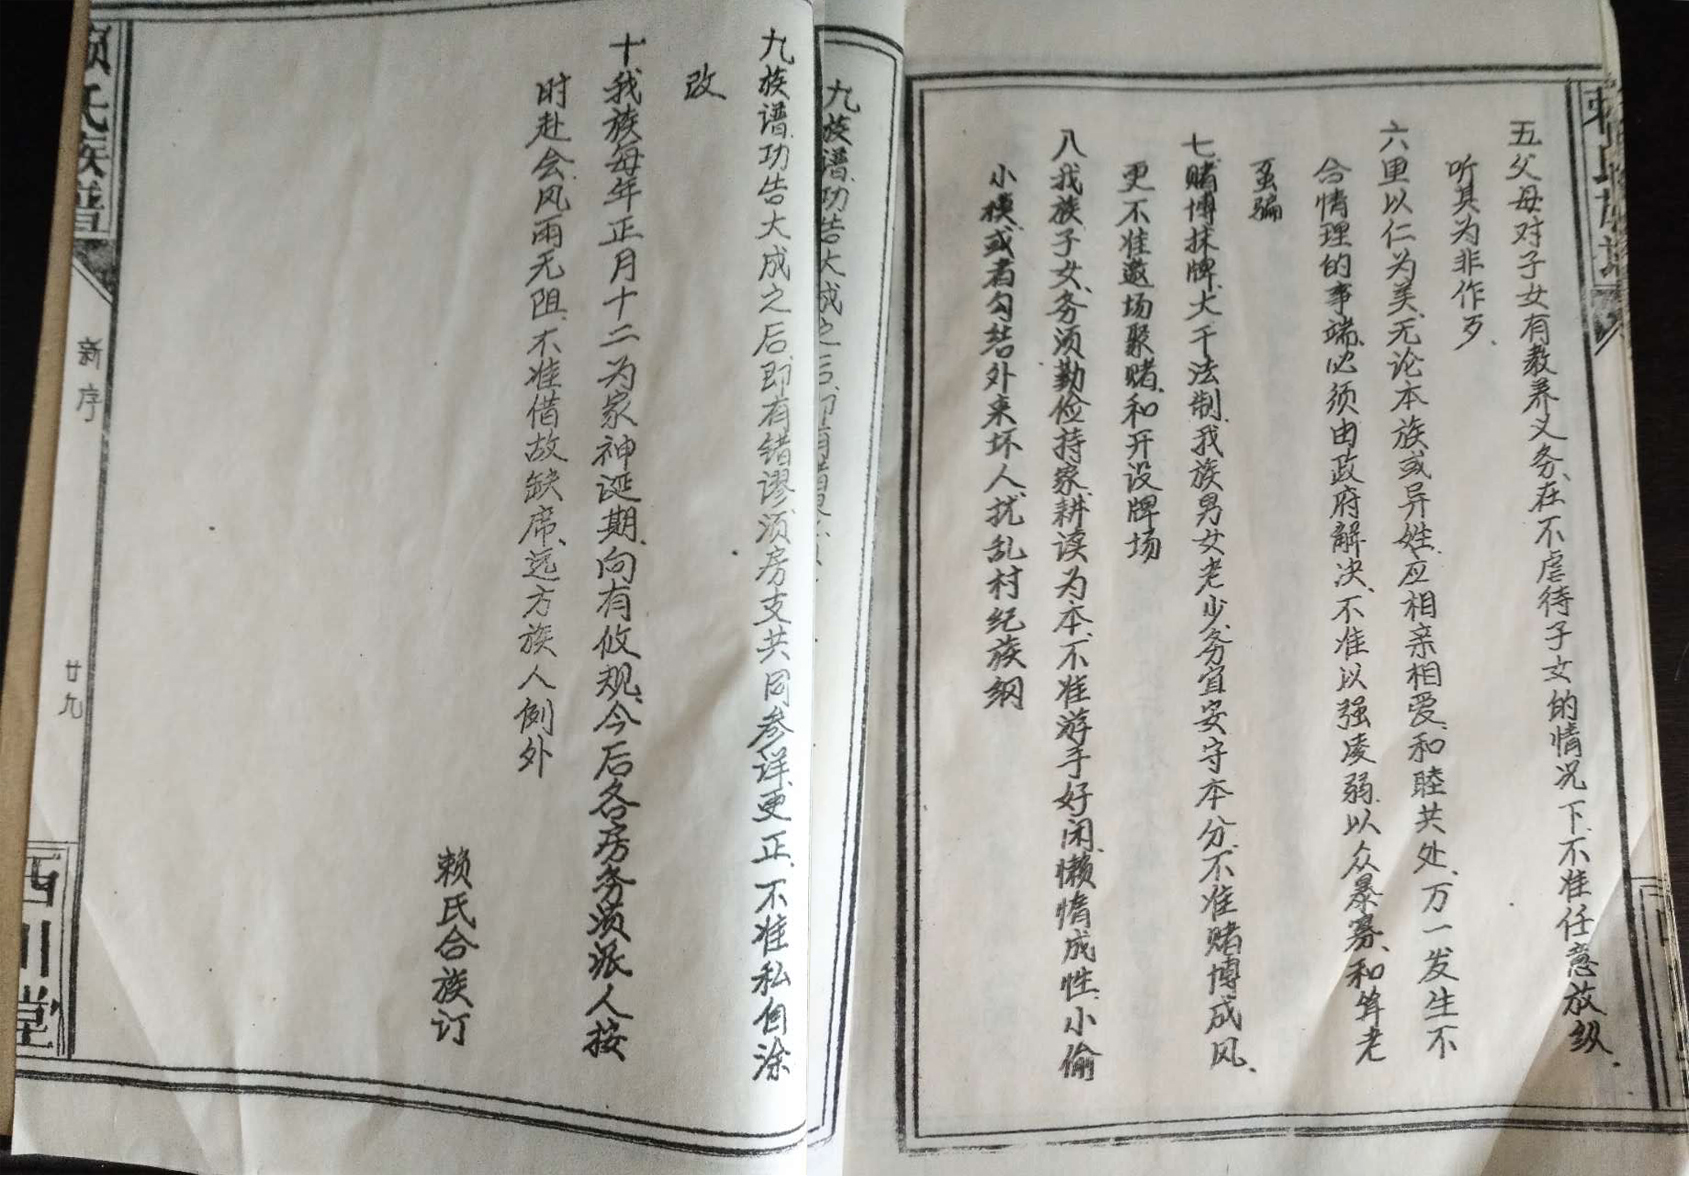 五父母对子女有教养义务、在不虐待子女的情况下、不准任意放纵、
听其为非作歹、
六里以仁为美、无论本族或异姓、应相亲相爱、和睦共处、万一发生不
合情理的事端、必须由政府解决、不准以强凌弱、以众暴寡、和耸老
骗
七、赌博抹牌、大干法制、我族男女老少、务宜安守本分、不准赌博成风、
更不准邀场聚赌、和开设牌场
八我族子女、务须勤俭持家、耕读为本、不准游手好闲、懒惰成性、小偷
小摸、或者勾结外来坏人、扰乱村纪族纲
九族谱功告大成之
九族谱功告大成之后、即有错谬、须房支共同参详、更正、不准私自涂
改
十、我族每年正月十二为家神诞期、向有攸规、今后各房务须派人按
时赴会、风雨无阻、不准借故缺席、远方族人例外
赖氏合族订
赖氏族谱
新序
廿九
西川堂